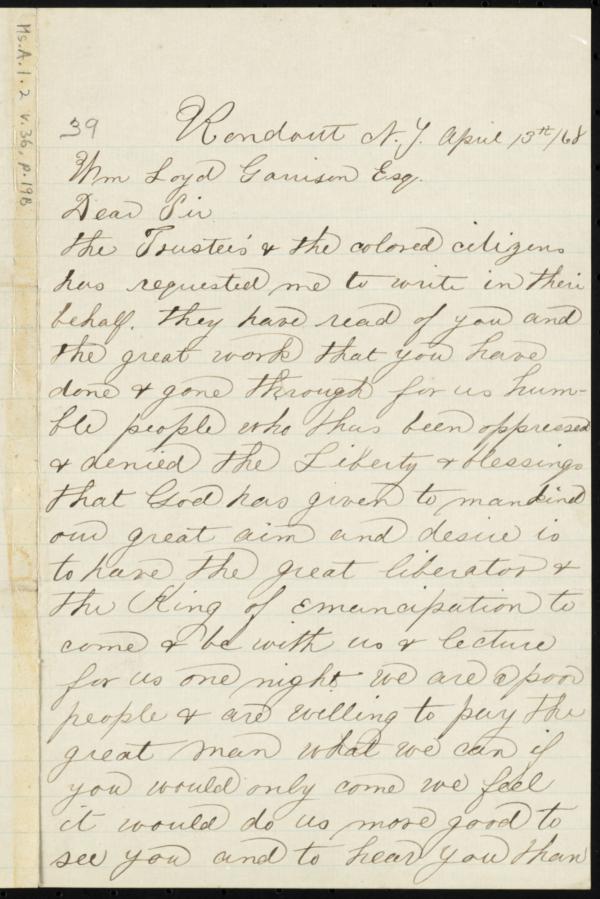 Ms.A.1.2 v.36, p.19B
39
Rondout N.Y. April 13th/68
Wm Loyd Garrison Esq.
Dear Sir
the Trustee's & the colored citizens
has requested me to write in their
behalf. they have read of you and
the great work that you have
done & gone through for us hum-
ble people who thus been oppressed
& denied the Liberty & blessings
that God has given to mankind
our great aim and desire is
to have the great liberator &
the King of emancipation to
come & be with us & lecture
for us one night we are a poor
people & are willing to pay the
great man what we can if
you would only come we feel
it would do us more good to
see you and to hear you than